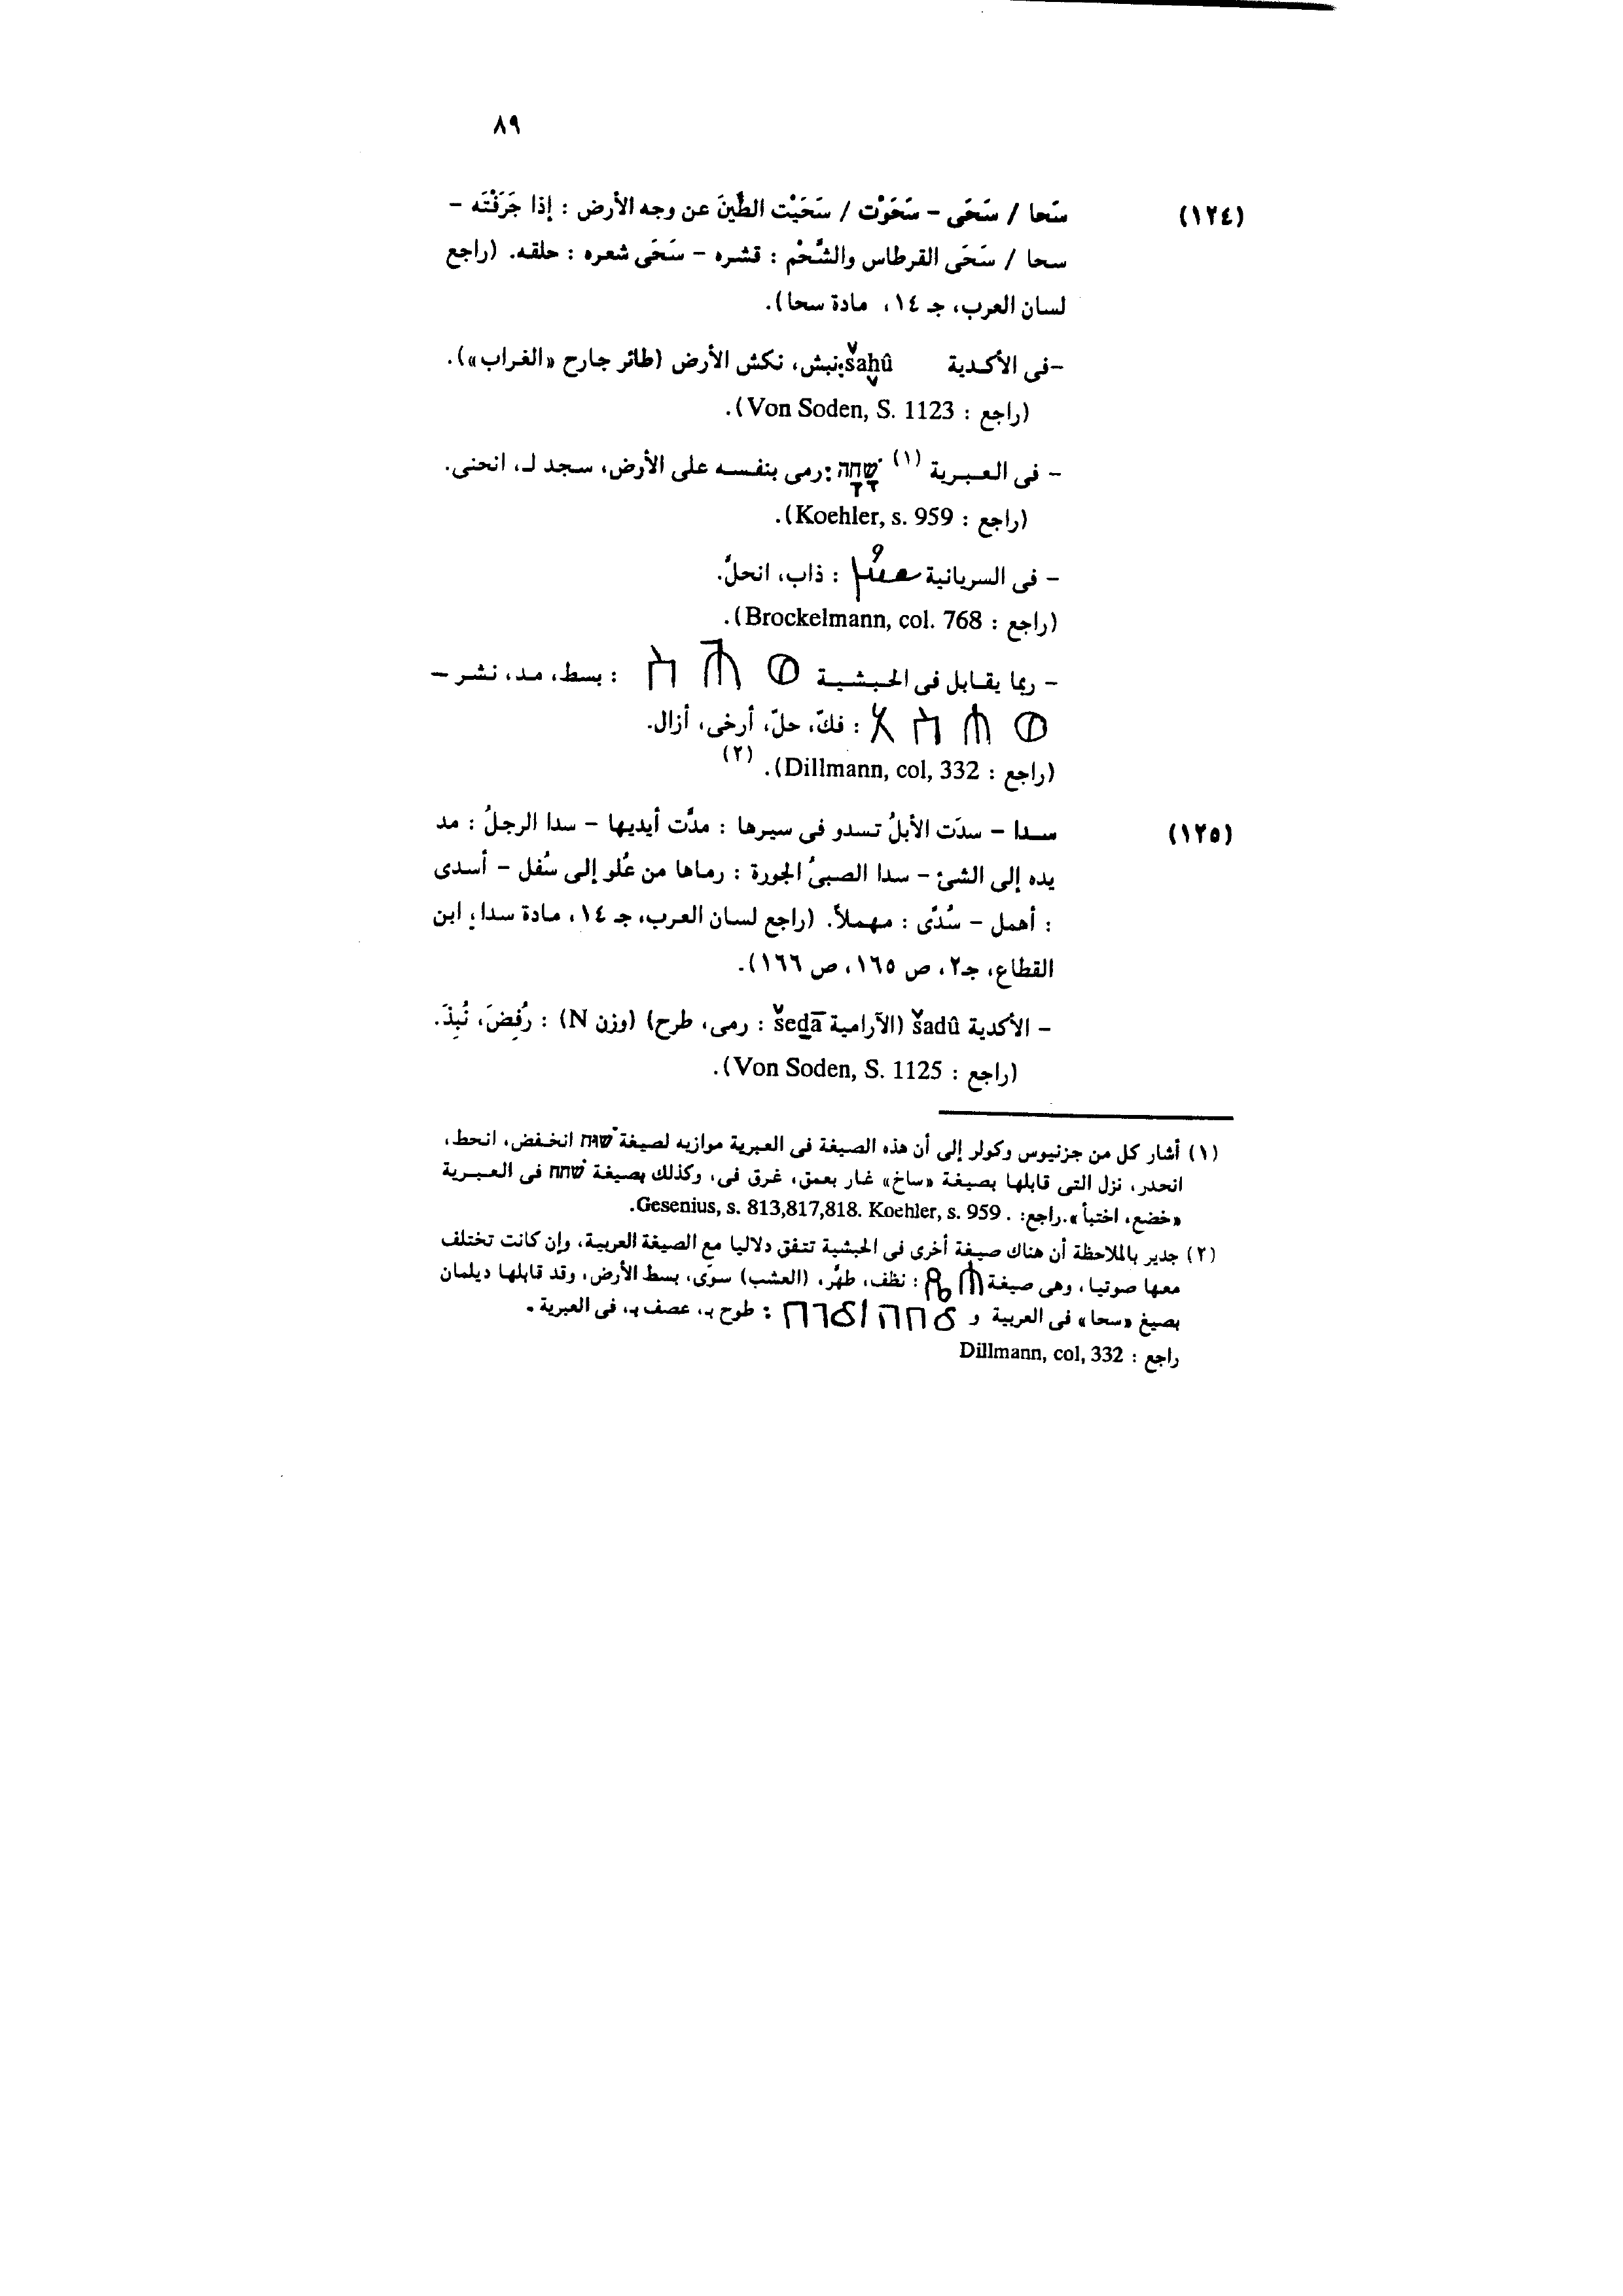 ٨٩
(١٢٤) سَحا / سَحَى – سَحَوْت / سَحَيْت الطِّينَ عن وجه الأرض : إذا جَرَفْتَه –
سحا / سَحَى القرطاس والشَّحْم : قشره – سَحَى شعره : حلقه. (راجع
لسان العرب، جـ ١٤، مادة سحا).
–فى الأكدية šaḫû:نبش، نكش الأرض (طائر جارح «الغراب»).
(راجع : Von Soden, S. 1123).
– فى العبرية (١) שָׁחָה:رمى بنفسه على الأرض، سجد لـ، انحنى.
(راجع : Koehler, s. 959).
– فى السريانية : ذاب، انحلّ.
(راجع : Brockelmann, col. 768).
– ربما يقابل فى الحبشية ወ ሐ ሰ : بسط، مد، نشر –
ወ ሐ ሰ : فكّ، حلّ، أرخى، أزال.
(راجع : Dillmann, col, 332). (٢)
(١٢٥) سدا – سدَت الأبلُ تسدو فى سيرها : مدَّت أيديها – سدا الرجلُ : مد
يده إلى الشئ – سدا الصبىُ الجورة : رماها من عُلو إلى سُفل – أسدى
: أهمل – سُدًى : مهملاً. (راجع لسان العرب، جـ ١٤، مادة سدا، ابن
القطاع، جـ٢، ص ١٦٥، ص ١٦٦).
– الأكدية šadû (الآرامية šeḏā : رمى، طرح) (وزن N) : رُفِضَ، نُبِذَ.
(راجع : Von Soden, S. 1125).
(١) أشار كل من جزنيوس وكولر إلى أن هذه الصيغة فى العبرية موازيه لصيغة שׁוח انخفض، انحط،
انحدر، نزل التى قابلها بصيغة «ساخ» غار بعمق، غرق فى، وكذلك بصيغة שׁחח فى العبرية
«خضع، اختبأ».راجع: .Gesenius, s. 813,817,818. Koehler, s. 959.
(٢) جدير بالملاحظة أن هناك صيغة أخرى فى الحبشية تتفق دلاليا مع الصيغة العربية، وإن كانت تختلف
معها صوتيا، وهى صيغة : نظف، طهَّر، (العشب) سوَّى، بسط الأرض، وقد قابلها ديلمان
بصيغ «سحا» فى العربية و : طوح بـ، عصف بـ، فى العبرية .
راجع : Dillmann, col, 332